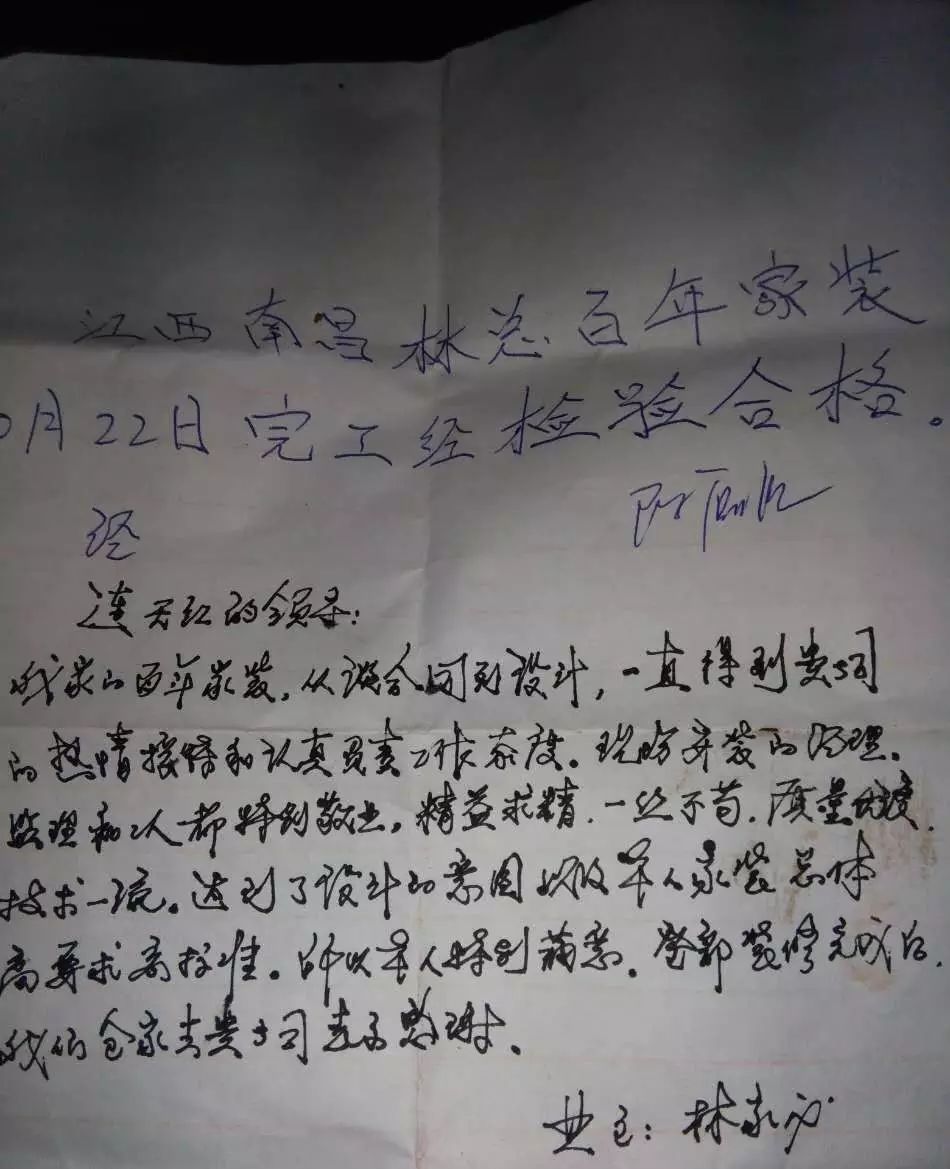 江西南昌林总百年家装
0月22日完工经检验合格。
经
连天红的领导：
我家的百年家装，从谈合同到设计，一直得到贵公司
的热情接待和认真负责工作态度。现场安装的经理。
监理和工人都特别敬业，精益求精，一丝不苟，质量优良，
技术一流。达到了设计的意图以及本人家装总体
高要求高标准。所以本人特别满意。全部装修完成后，
我们全家去贵公司表示感谢。
业主：林